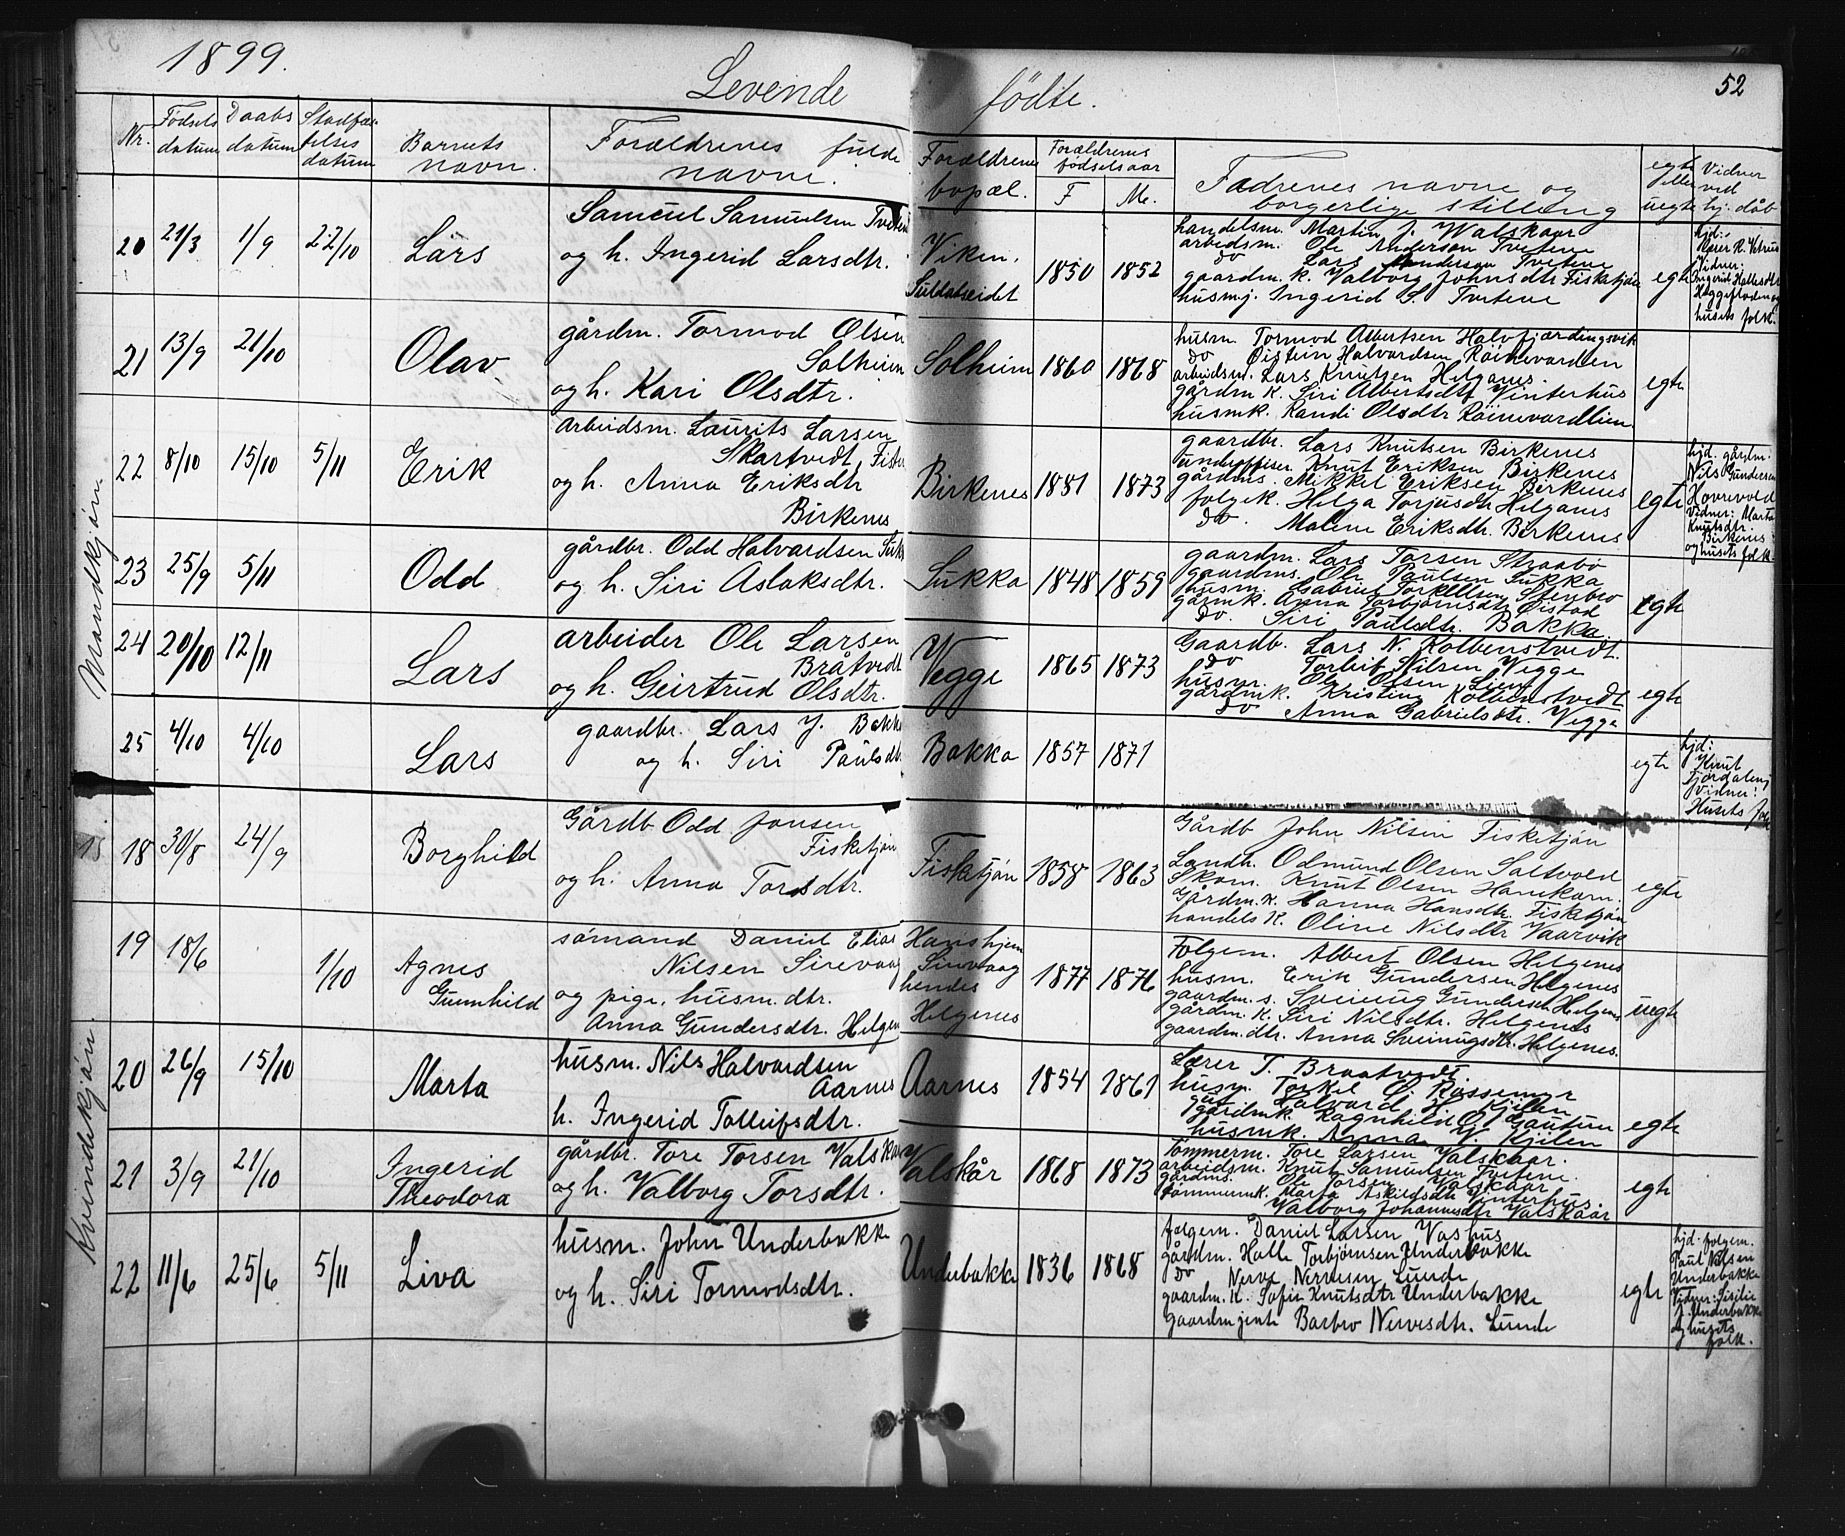 1899.
Levende fødte.
52
Nr.
Fødsels datum
Daabs datum
Stadfæstelses datum
Barnets navn.
Forældrenes fulde navne.
Forældrenes bopæl.
Forældrenes fødselsaar
F
M.
Fadrenes navne og borgerlige stilling
egte eller uegte
Vidner ved hj. dåb
Mandkjøn.
20 21/3 1/9 22/10 Lars
Samuel Samuelsen Tveten
og h. Ingerid Larsdtr.
Viken.
Suldalseidet
1850 1852
handelsm. Martin J. Walskaar
arbeidsm. Ole Anderson Tvetene
do Lars Anderson Tvetene
gaardm. k. Valborg Johnsdtr Fisketjøn
husmj. Ingerid S. Tvetene
egte
hjd:
Vidner:
husets folk.
21 13/9 21/10 Olav
gårdm. Tormod Olsen
Solheim
og h. Kari Olsdtr.
Solheim 1860 1868
husm Tormod Albertsen Halvfjærdingsvik
do Øistein Halvardsen Røinevardlien
arbeidsm. Lars Knutsen Helganes.
gårdm k. Siri Albertsdtr Vinterhus
husmk. Randi Olsdtr Røinevardlien
egte
22 8/10 15/10 5/11 Erik
Arbeidsm. Laurits Larsen
Skartvedt, Fister
og h. Anna Eriksdtr
Birkenes
Birkenes 1881 1873
gaardbr. Lars Knutsen Birkenes
underoffiser Knut Eriksen Birkenes
gårdms. Mikkel Eriksen Birkenes
folgek. Helga Torjusdtr Helganes
do. Malene Eriksdtr. Birkenes
egte
hjd. gårdm.
Nils Gundersen
Hovrevold
Vidner: Marta
Knutsdtr.
Birkenes
og husets folk
23 25/9 5/11 Odd
gårdbr. Odd Halvardsen Suk
og h. Siri Aslaksdtr.
Sukka 1848 1859
gaardm. Lars Torsen Straabø
gaardms. Ole Paulsen Sukka
husm. Gabriel Torkellsen Stenbro
gårmk. Anna Torbjørnsdtr Øistad
do. Siri Paulsdtr. Bakka.
egte
24 20/10 12/11 Lars
arbeider Ole Larsen
Bråtvedt
og h. Geirtrud Olsdtr.
Vegge 1865 1873
Gaardb. Lars N. Kolbenstvedt.
do Torleif Nilsen Vegge
husm. Ole Olsen Lien
gårdmk. Kristine Kolbenstvedt
do Anna Gabrielsdtr. Vegge
egte
25 4/10 4/10 Lars
gaardbr. Lars J. Bakk
og h. Siri Paulsdtr
Bakka 1857 1871
egte
hjd:
Knut
Vidner:
Husets folk
Kvindekjøn.
18 30/8 24/9 Borghild
Gårdb Odd Jonsen
Fisketjøn
og h. Anna Torsdtr.
Fisketjøn 1858 1863
Gårdb John Nilsen Fisketjøn
Landh. Odmund Olsen Saltvold
Skom. Knut Olsen Hamkarn.
Gårdm. k. Hanna Hansdtr. Fisketjøn
handels k. Oline Nilsdtr Vaarvik
egte
19 18/6 1/10 Agnes
Gunnhild
sømand Daniel Elias
Nilsen Sirevaag
og pige, husm. dtr.
Anna Gundersdtr. Helgen
Hans hjem
Sirevaag
hendes
Helgenes
1877 1876
Folgem. Albert Olsen Helgenes
husm. Erik Gundersen Helgenes
gaardm. s. Sveinung Gundersen Helgenes
gårdm. k. Siri Nilsdtr. Helgenes
gaardm. dtr. Anna Sveinungsdtr. Helgenes.
uegte
20 26/9 15/10 Marta
husm. Nils Halvardsen
Aarnes
h. Ingerid Tolleifsdtr.
Aarnes 1854 1861
Lærer T. Braatvedt.
husm. Torkel Ø Røssemyr
gut Halvard J. Kjilen
gårdmk. Ragnhild O. Gautun
husmk. Anna N. Kjilen
egte
21 3/9 21/10 Ingerid
Theodora
gårdbr. Tore Torsen Valskaar
og h. Valborg Torsdtr.
Valskår 1868 1873
Tømmerm. Tore Larsen Valskaar.
arbeidsm. Knut Samuelsen Tvetene.
gårdms. Ole Torsen Valskaar
tømmermk. Marta Askildsdtr Vinterhus
Valborg Johannesdtr Valskaar
egte
22 11/6 25/6 5/11 Liva
husm. John Underbakke
og h. Siri Tormodsdtr.
Underbakke 1836 1868
folgem. Daniel Larsen Vashus
gårdm. Halle Torbjørnsen Underbakke
do Nerve Nervesen Lunde
gaardm. k. Sofie Knutsdtr Underbakke
Gaardmjente Barbro Nervesdtr. Lunde
egte
hjd. folgem.
Paul Nilsen
Underbakke
Vidner: Sisilie
J. Underbakke
og husets
folk.